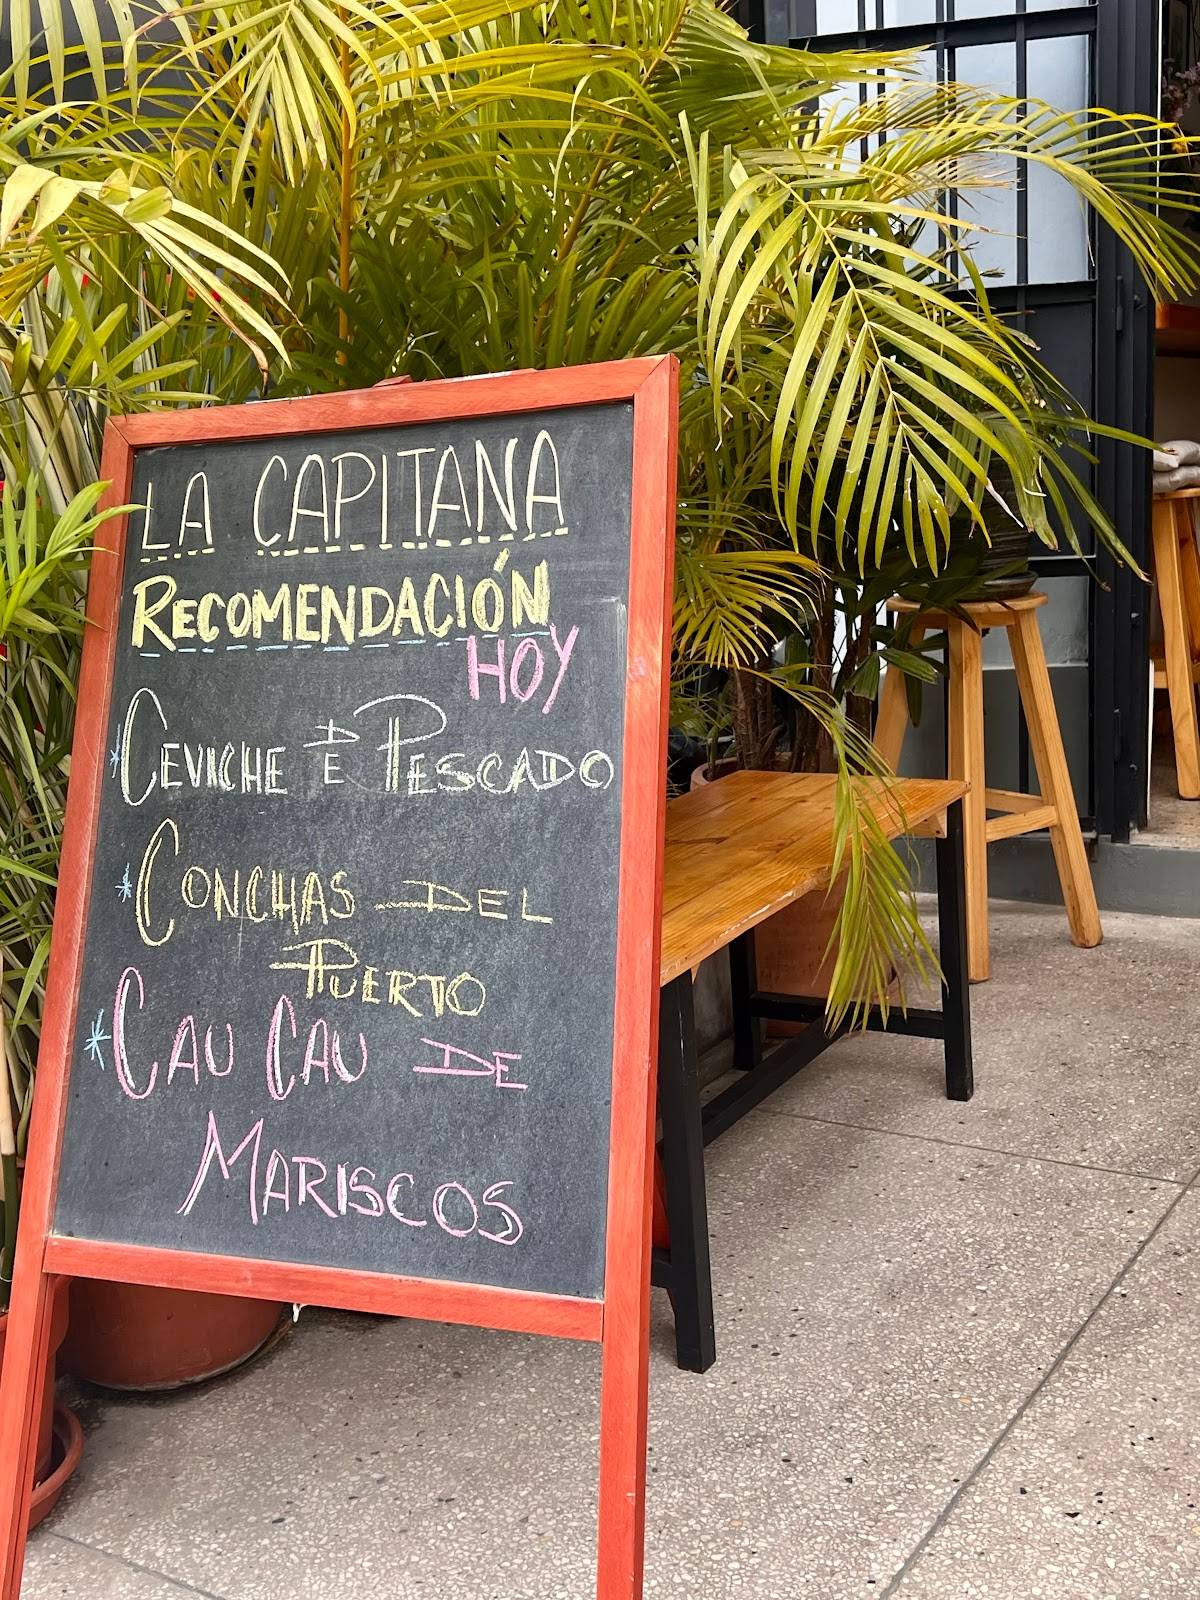 LA CAPITANA
RECOMENDACIÓN
HOY
* CEVICHE DE PESCADO
* CONCHAS DEL
PUERTO
* CAU CAU DE
MARISCOS